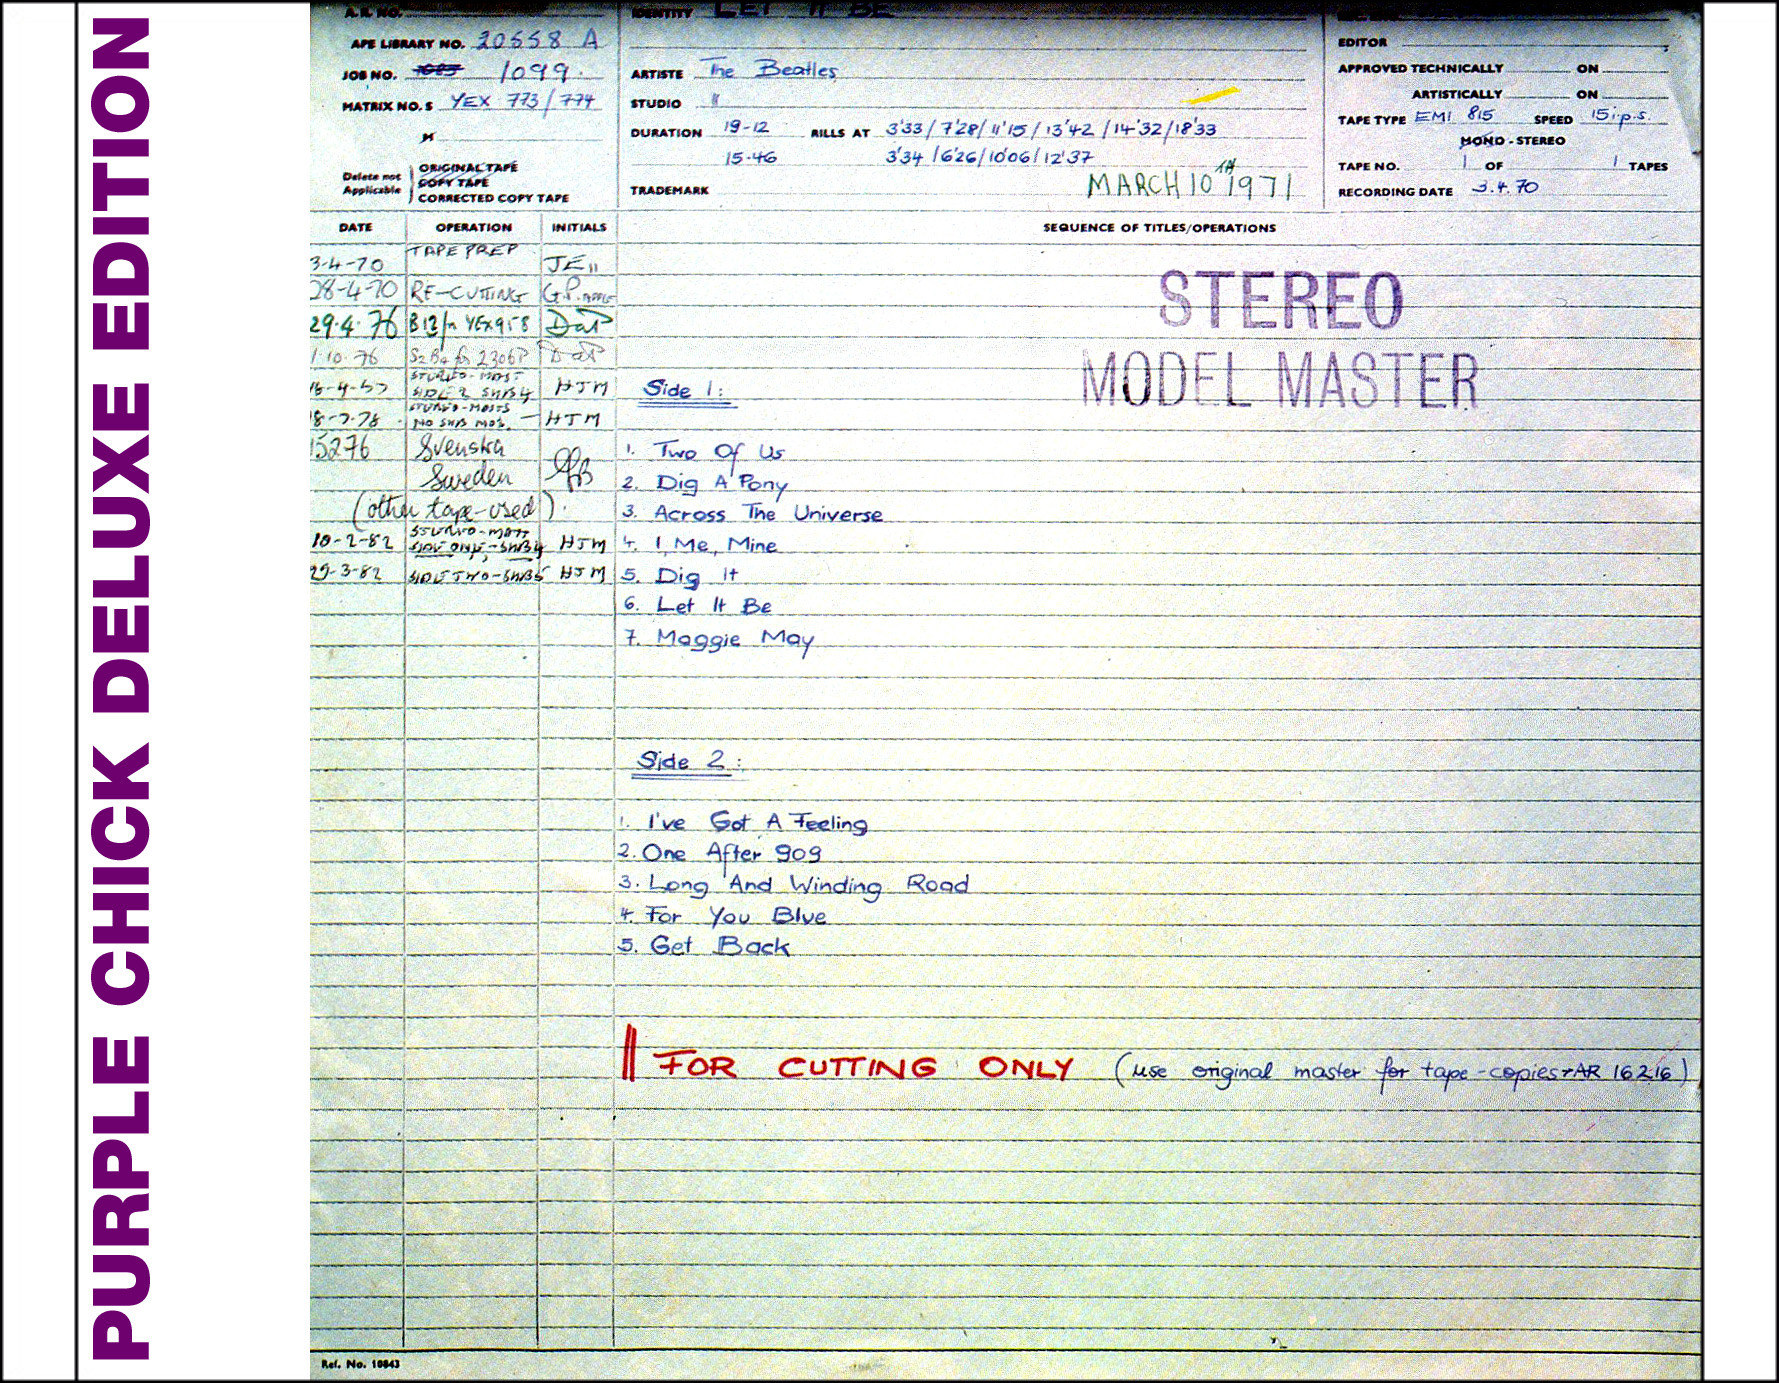 PURPLE CHICK DELUXE EDITION
A.R. NO.
APE LIBRARY NO. 20558 A
JOB NO. 1099.
MATRIX NO.S YEX 773/774
Delete not Applicable
ORIGINAL TAPE
COPY TAPE
CORRECTED COPY TAPE
IDENTITY LET IT BE
ARTISTE The Beatles
STUDIO "
DURATION 19-12 RILLS AT 3'33/7'28/11'15/13'42/14'32/18'33
15-46 3'34/6'26/10'06/12'37
TRADEMARK
MARCH 10TH 1971
EDITOR
APPROVED TECHNICALLY ON
ARTISTICALLY ON
TAPE TYPE EMI 815 SPEED 15 i.p.s.
MONO - STEREO
TAPE NO. 1 OF 1 TAPES
RECORDING DATE 3.4.70
DATE OPERATION INITIALS
SEQUENCE OF TITLES/OPERATIONS
3-4-70 TAPE PREP JE
28-4-70 RE-CUTTING G.P.
29.4.76 B12/n YEX958 DaP
1.10.76 DaP
SIDE 2 HJM
HJM
15276 Svenska
Sweden
(other tape-used).
10-2-82 SIDE ONE HJM
29-3-82 SIDE TWO HJM
STEREO
MODEL MASTER
Side 1:
1. Two Of Us
2. Dig A Pony
3. Across The Universe
4. I, Me, Mine
5. Dig It
6. Let It Be
7. Maggie May
Side 2:
1. I've Got A Feeling
2. One After 909
3. Long And Winding Road
4. For You Blue
5. Get Back
FOR CUTTING ONLY (use original master for tape-copies AR 16216)
Ref. No. 10843